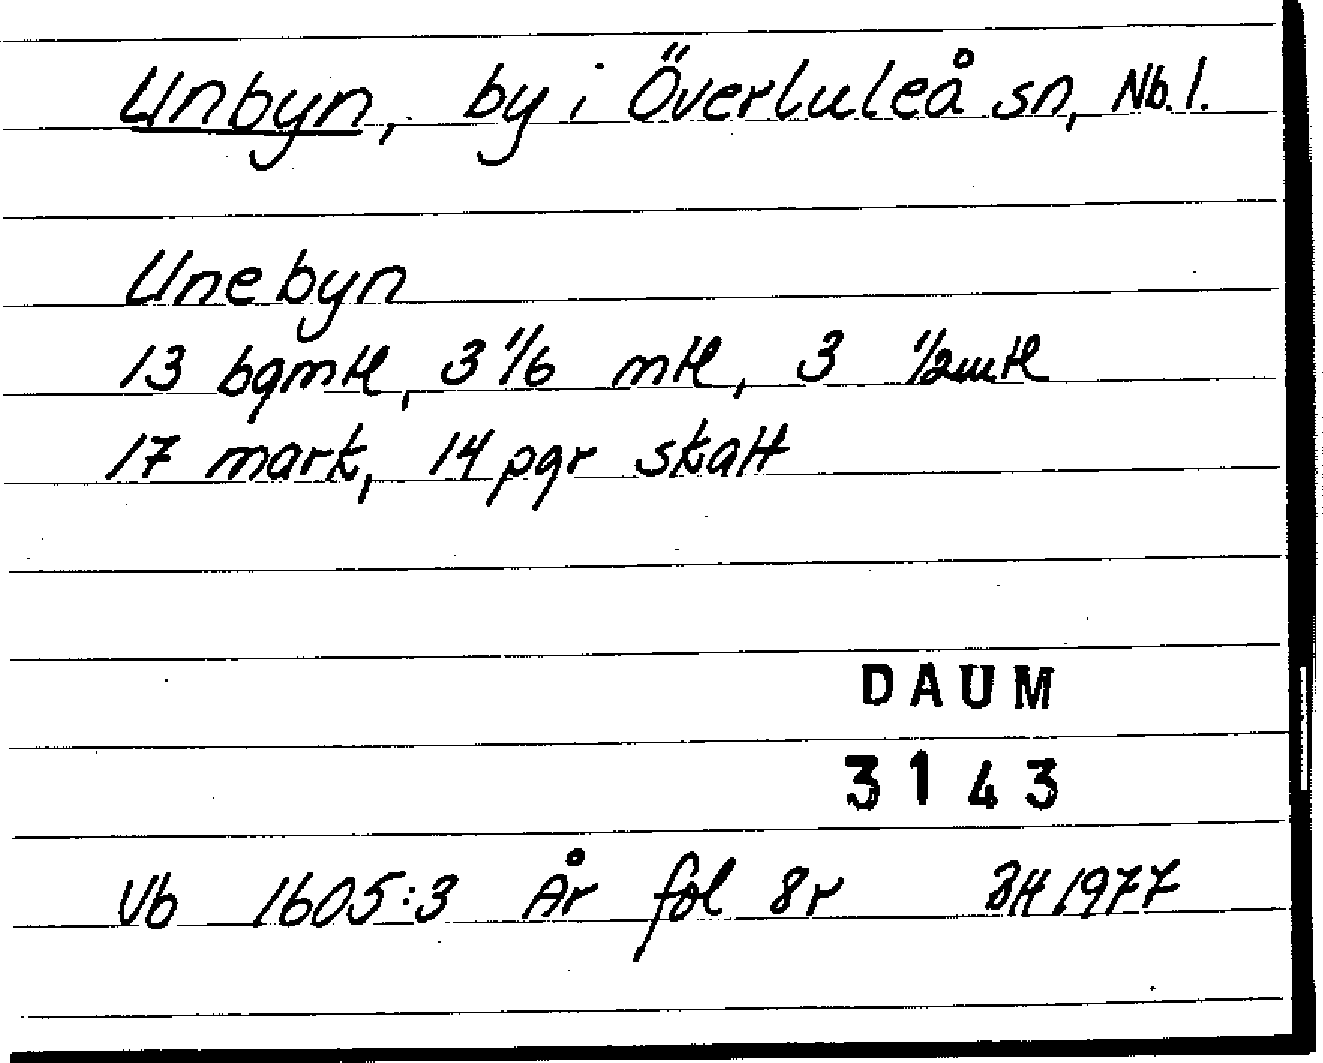 Unbyn, by i Överluleå sn, Nb. l.
Unebyn
13 bgmtl, 3 1/6 mtl, 3 1/2 mtl
17 mark, 14 pgr skatt
DAUM
3143
Vb 1605:3 År fol 8r 1977